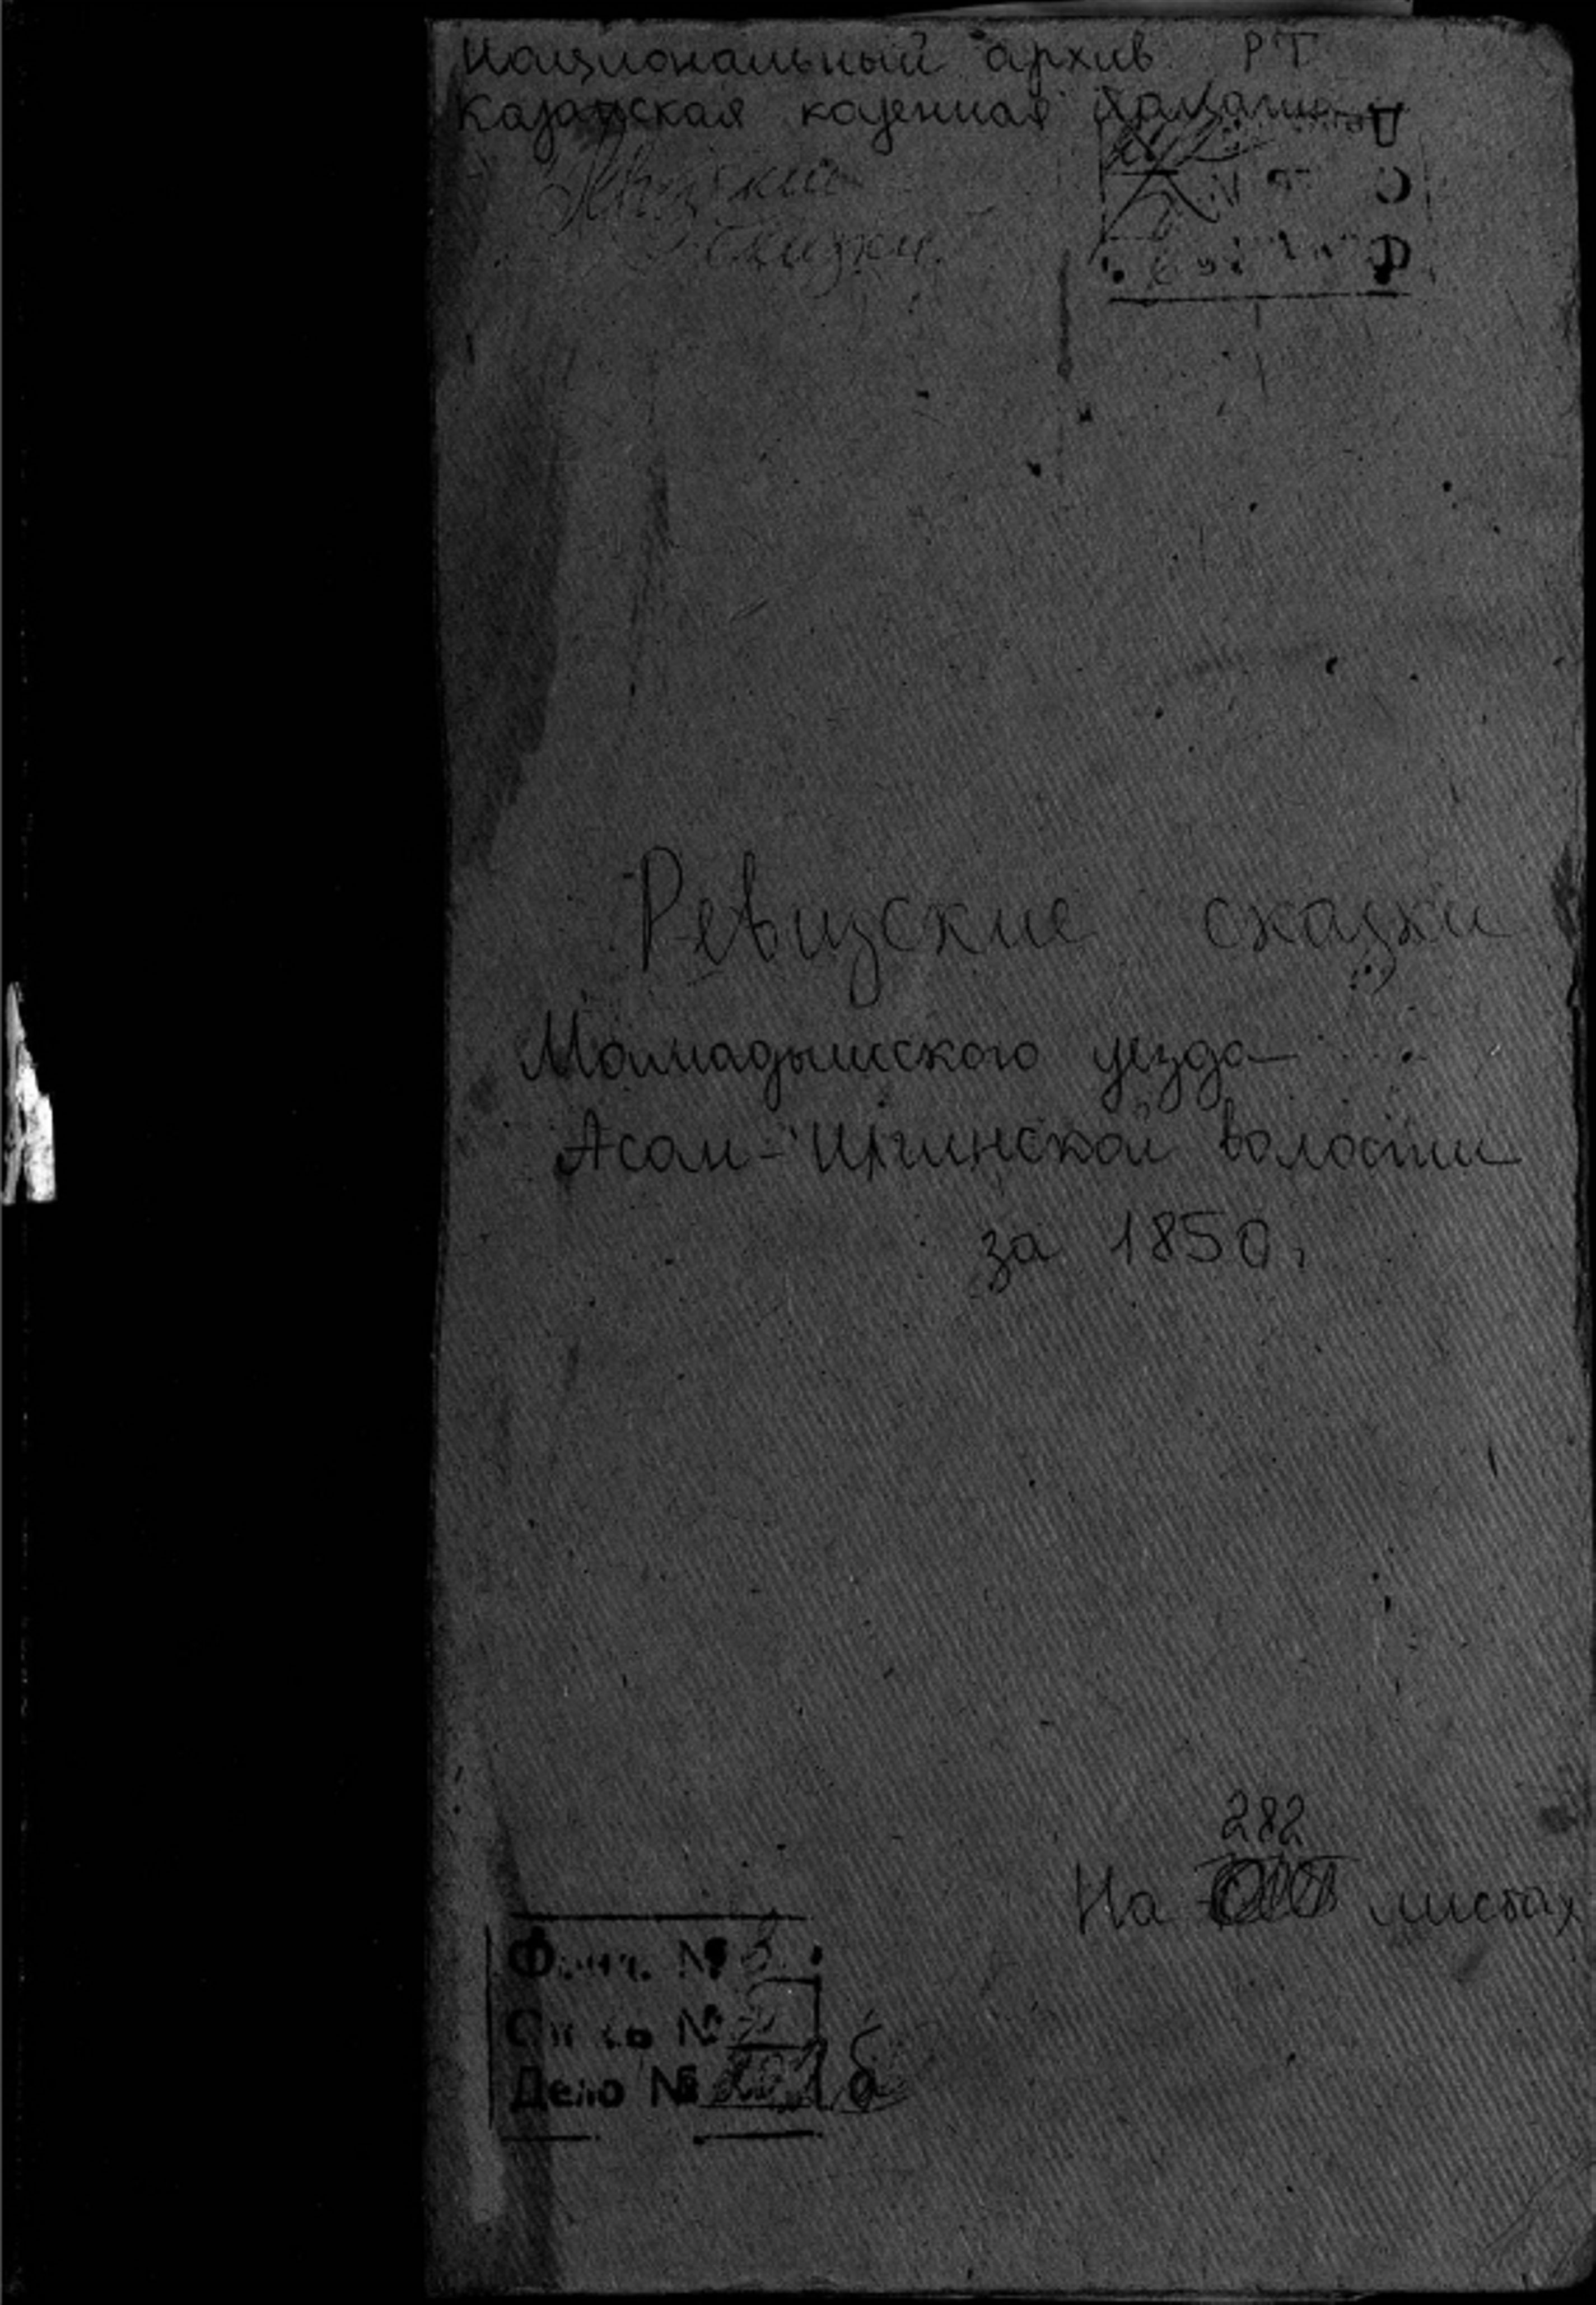 Национальный архив РТ
Казанская казенная палата
Ревизские
сказки
Ревизские сказки
Мамадышского уезда
Асан-Илгинской волости
за 1850г.
282
На листах
Фонд. № 3
Опись № 2
Дело № б